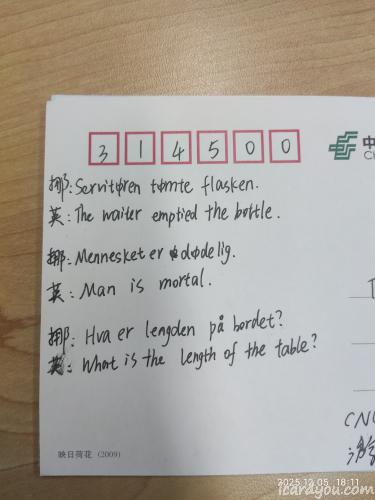 314500
中
挪: Servitøren tømte flasken.
英: The waiter emptied the bottle.
挪: Mennesket er dødelig.
英: Man is mortal.
挪: Hva er lengden på bordet?
英: What is the length of the table?
CNU
映日荷花 (2009)
2025.12.05 18:11
icardyou.com